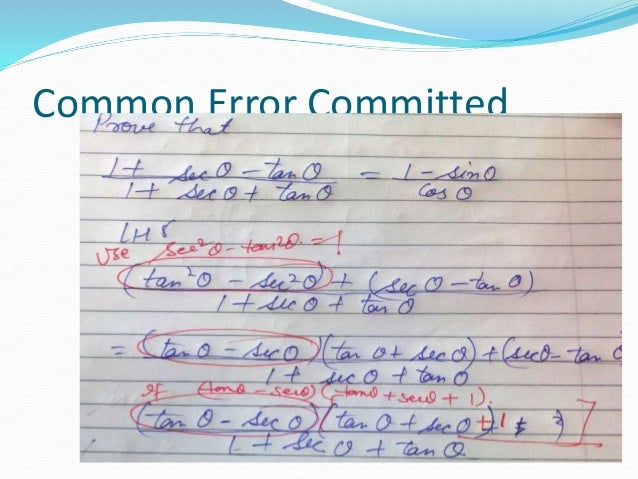 Common Error Committed
Prove that
1 + sec θ - tan θ / 1 + sec θ + tan θ = 1 - sin θ / cos θ
LHS
Use sec²θ - tan²θ = 1
(tan²θ - sec²θ) + (sec θ - tan θ) / 1 + sec θ + tan θ
= (tan θ - sec θ)(tan θ + sec θ) + (sec θ - tan θ / 1 + sec θ + tan θ
(tan θ - sec θ) (tan θ + sec θ + 1).
(tan θ - sec θ)(tan θ + sec θ) + 1 / 1 + sec θ + tan θ